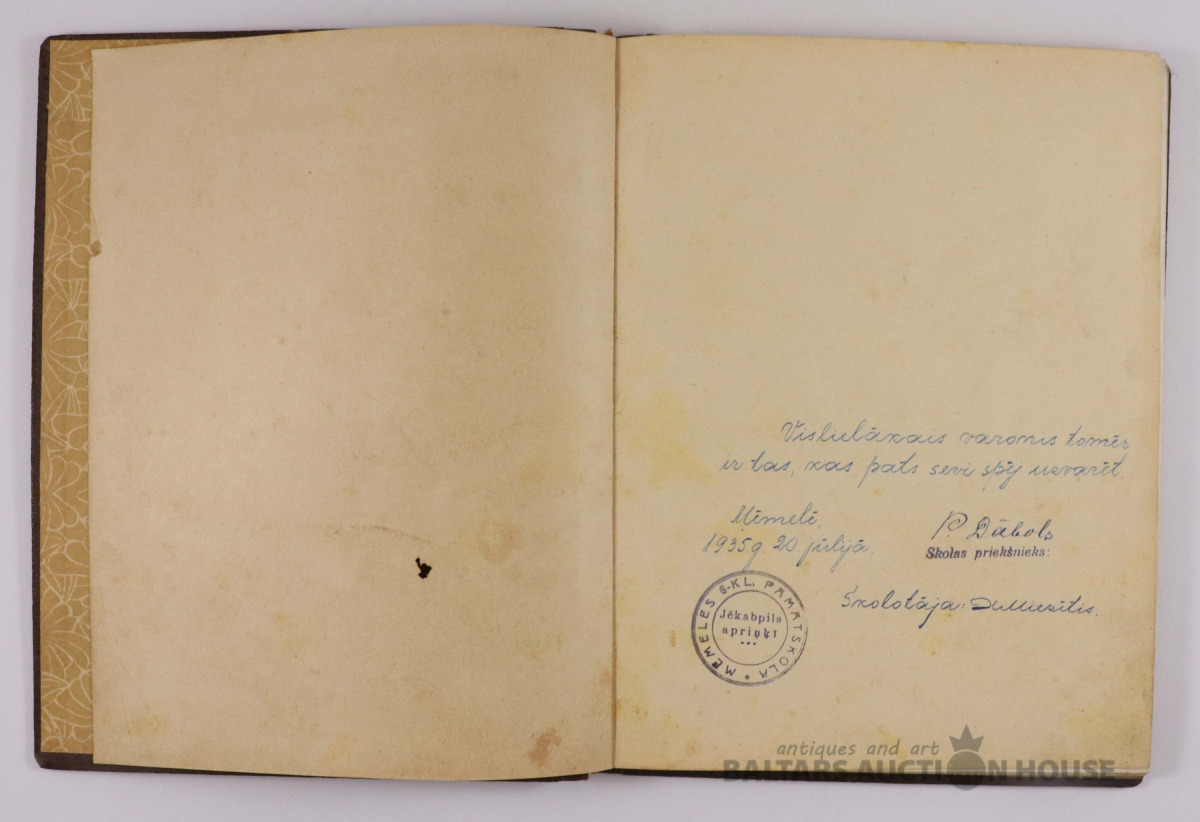 Vislielākais varonis tomēr
ir tas, kas pats sevi spēj uzvarēt.
Mēmelē,
1935.g. 20 jūlijā.
P. Dābols
Skolas priekšnieks:
Skolotāja:
MĒMELES 6-KL. PAMATSKOLA *
Jēkabpils
apriņķī
antiques and art
BALTARS AUCTION HOUSE